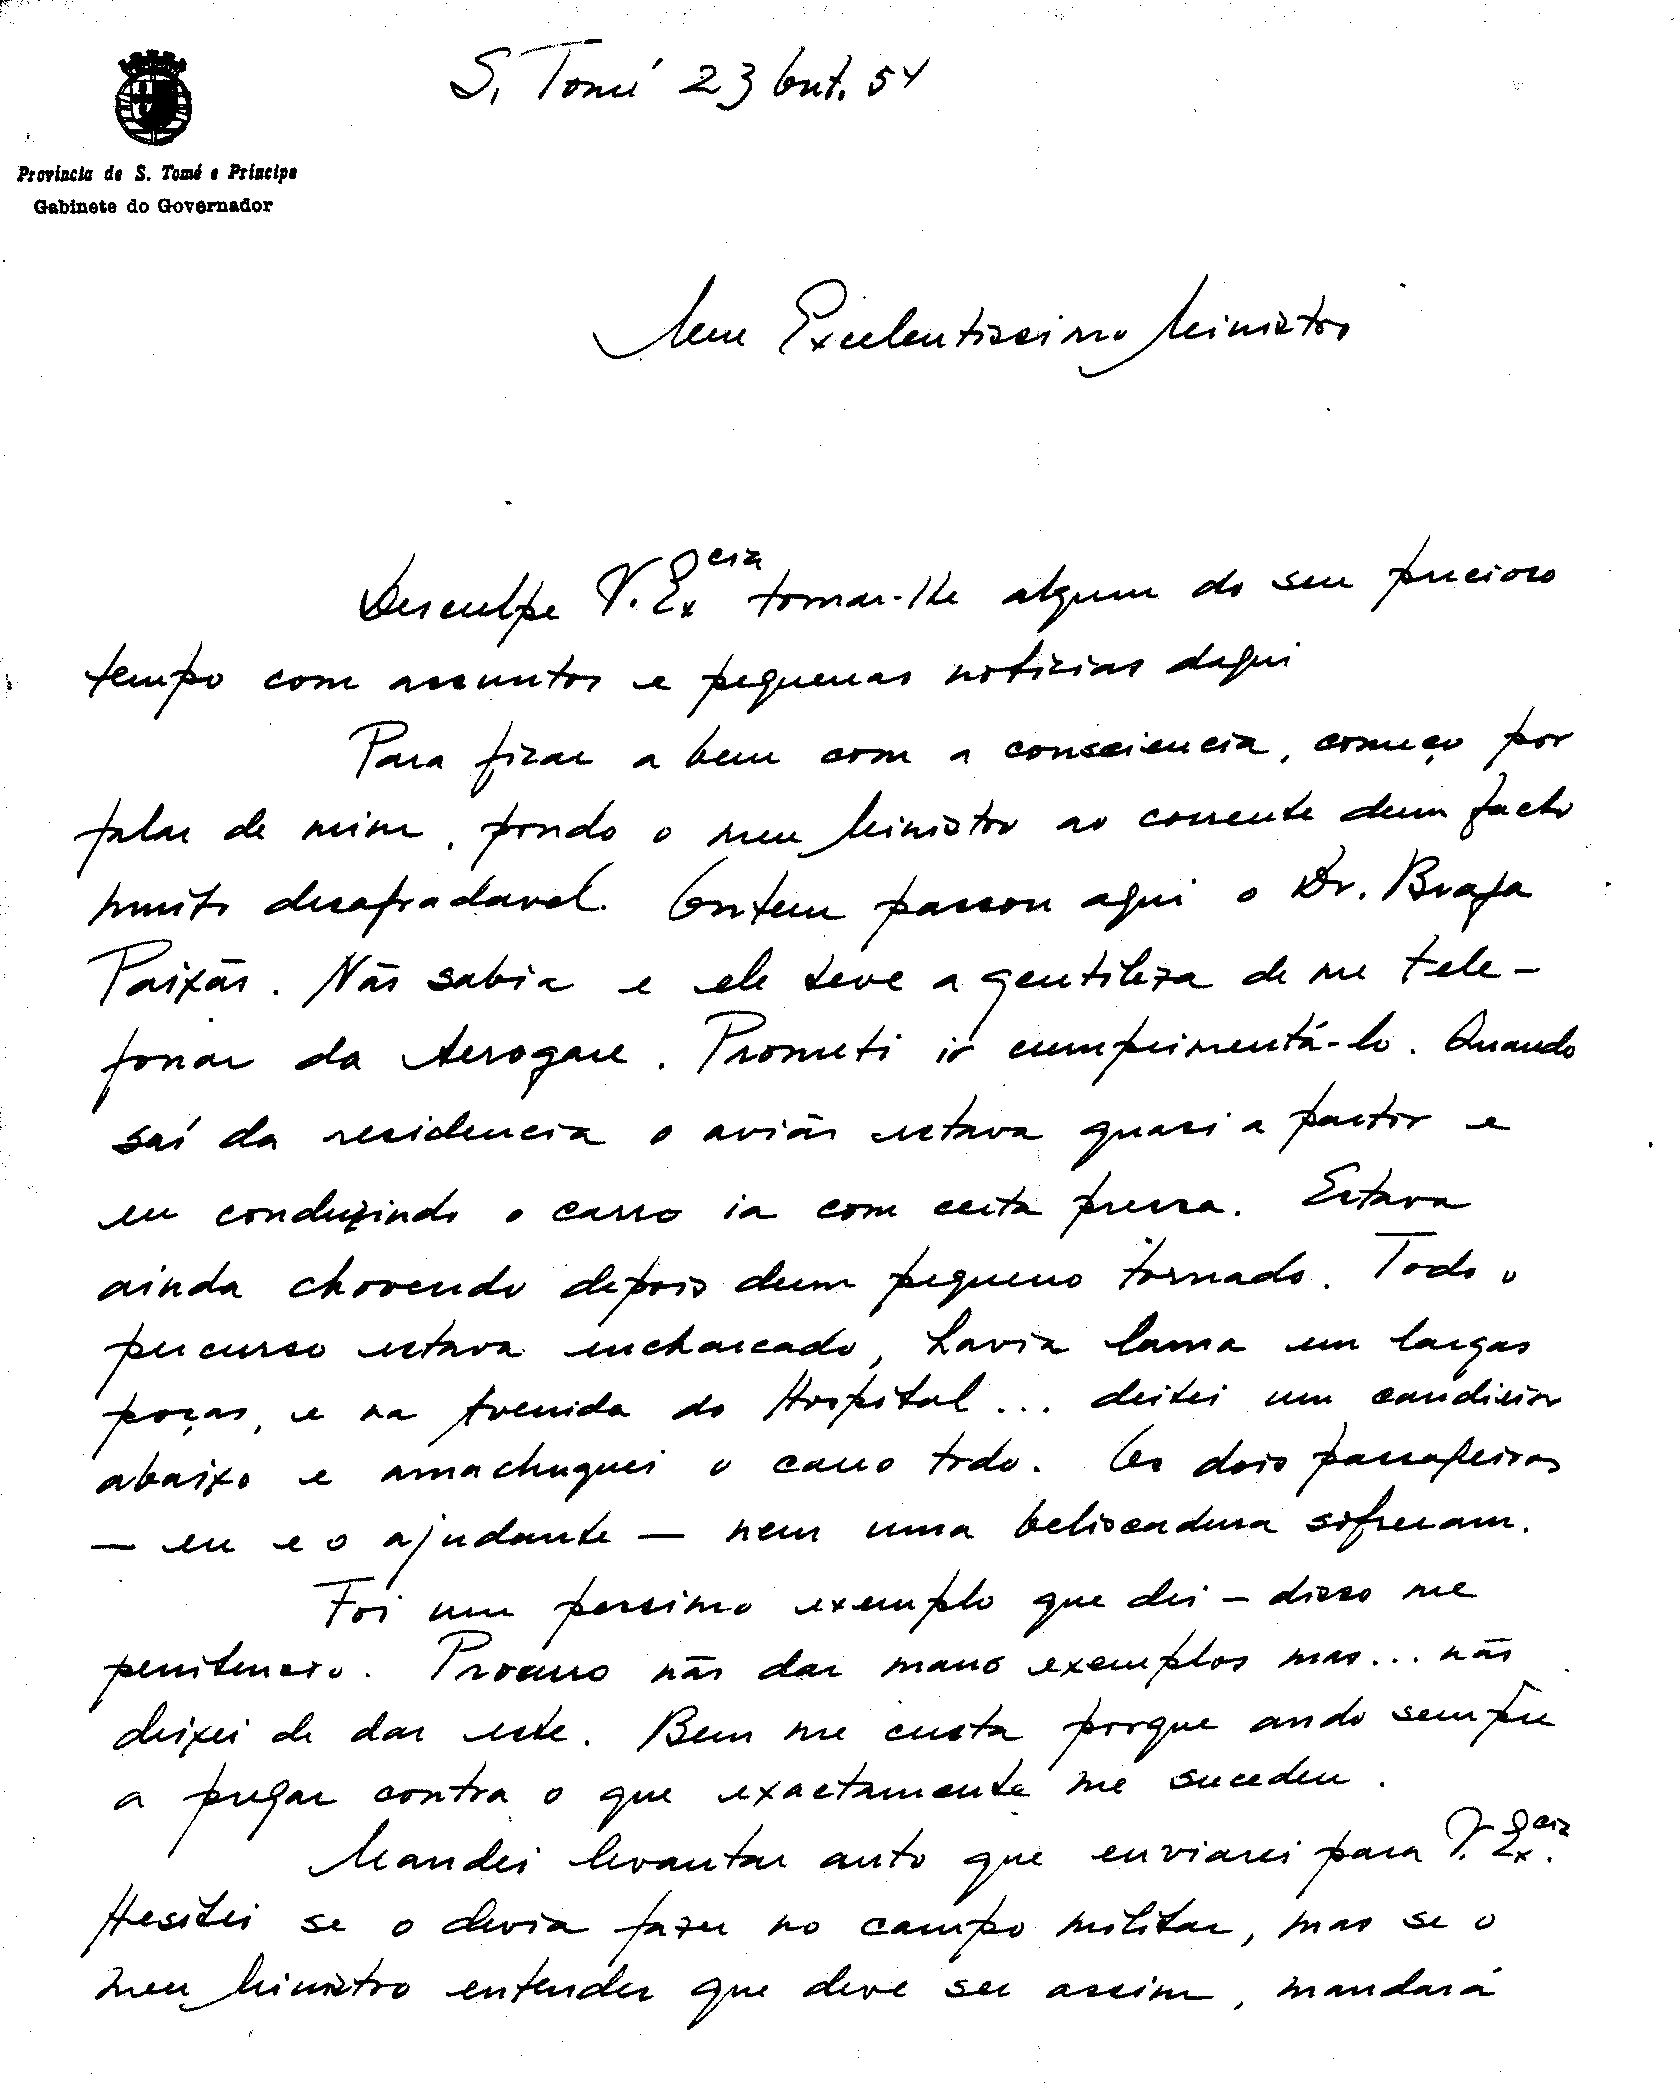 S. Tomé 23 Out. 54
Província de S. Tomé e Príncipe
Gabinete do Governador
Meu Excelentissimo Ministro
Desculpe V. Ex.cia tomar-lhe algum do seu precioso
tempo com assuntos e pequenas noticias daqui
Para ficar a bem com a consciencia, começo por
falar de mim, pondo o meu Ministro ao corrente dum facto
muito desagradavel. Ontem passou aqui o Dr. Braga
Paixão. Não sabia e ele teve a gentileza de me tele-
fonar da Aerogare. Prometi ir cumprimentá-lo. Quando
saí da residencia o avião estava quasi a partir e
eu conduzindo o carro ia com certa pressa. Estava
ainda chovendo depois dum pequeno tornado. Todo o
percurso estava encharcado, havia lama em largas
poças, e na Avenida do Hospital... deitei um candieiro
abaixo e amachuquei o carro todo. Os dois passageiros
— eu e o ajudante — nem uma beliscadura sofreram.
Foi um pessimo exemplo que dei – disso me
penitencio. Procuro não dar maus exemplos mas... não
deixei de dar este. Bem me custa porque ando sempre
a pregar contra o que exactamente me sucedeu.
Mandei levantar auto que enviarei para V. Ex.cia
Hesitei se o devia fazer no campo militar, mas se o
meu Ministro entender que deve ser assim, mandará